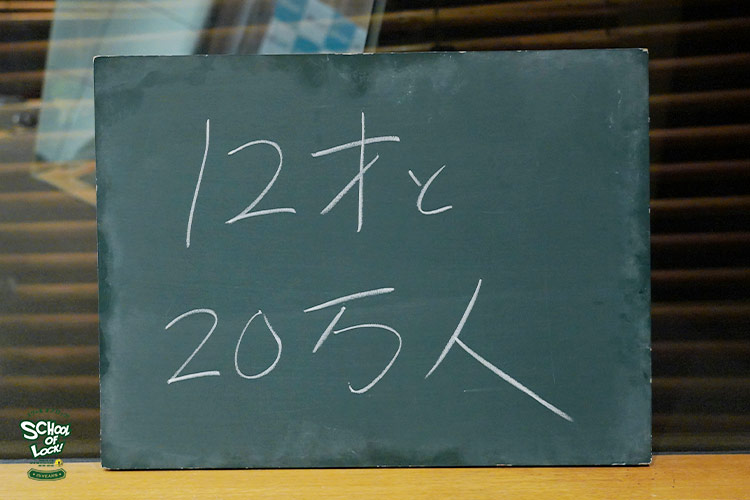 12才と
20万人
SCHOOL
OF
LOCK!